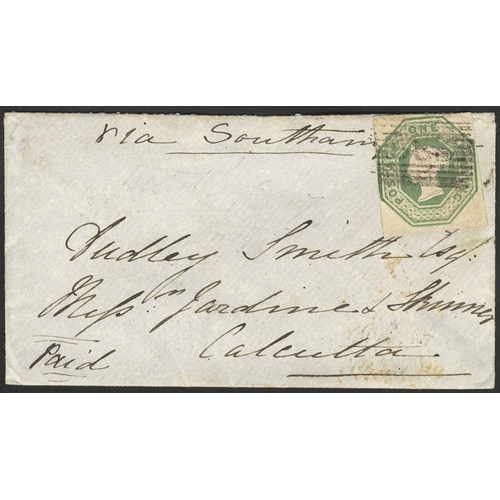 via Southam
POSTAGE ONE
Dudley Smith Esq.
Messrs. Jardine & Skinner
Calcutta.
Paid